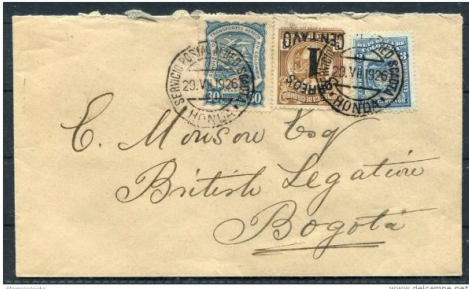 SERVICIO POSTAL AEREO SCADTA
29.VII.1926
HONDA
30 30
CORREOS
1
CENTAVO
29.VII.1926
HONDA
C. Monson Esq
British Legation
Bogotá
www.delcampe.net